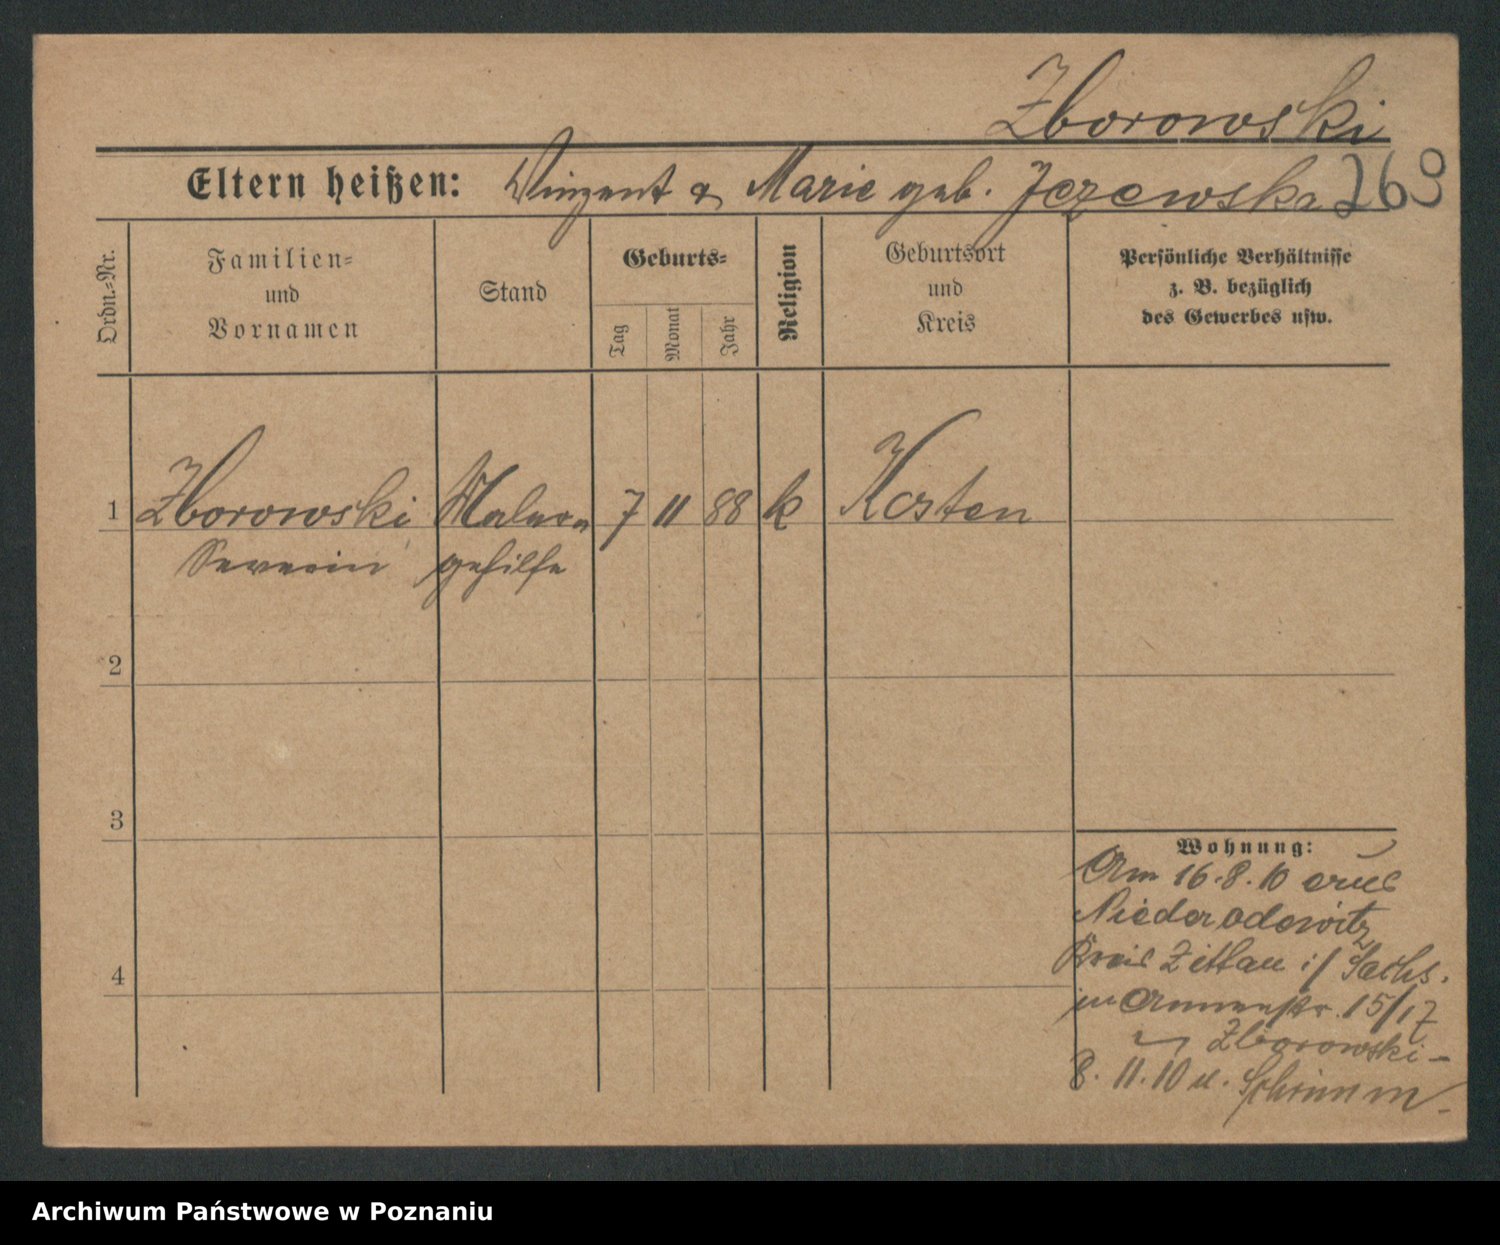 Zborowski
Eltern heißen: Vinzent & Marie geb. Jezewska 269
Ordn.=Nr.
Familien=
und
Vornamen
Stand
Geburts=
Tag
Monat
Jahr
Religion
Geburtsort
und
Kreis
Persönliche Verhältnisse
z. B. bezüglich
des Gewerbes usw.
1 Zborowski Maler= 7 11 88 k Kosten
Severin gehilfe
2
3
4
Wohnung:
Am 16.8.10 aus
Niederoderwitz
Kreis Zittau i/ Sachs.
in 15/17
Zborowski -
8.11.10 n. Schrimm.